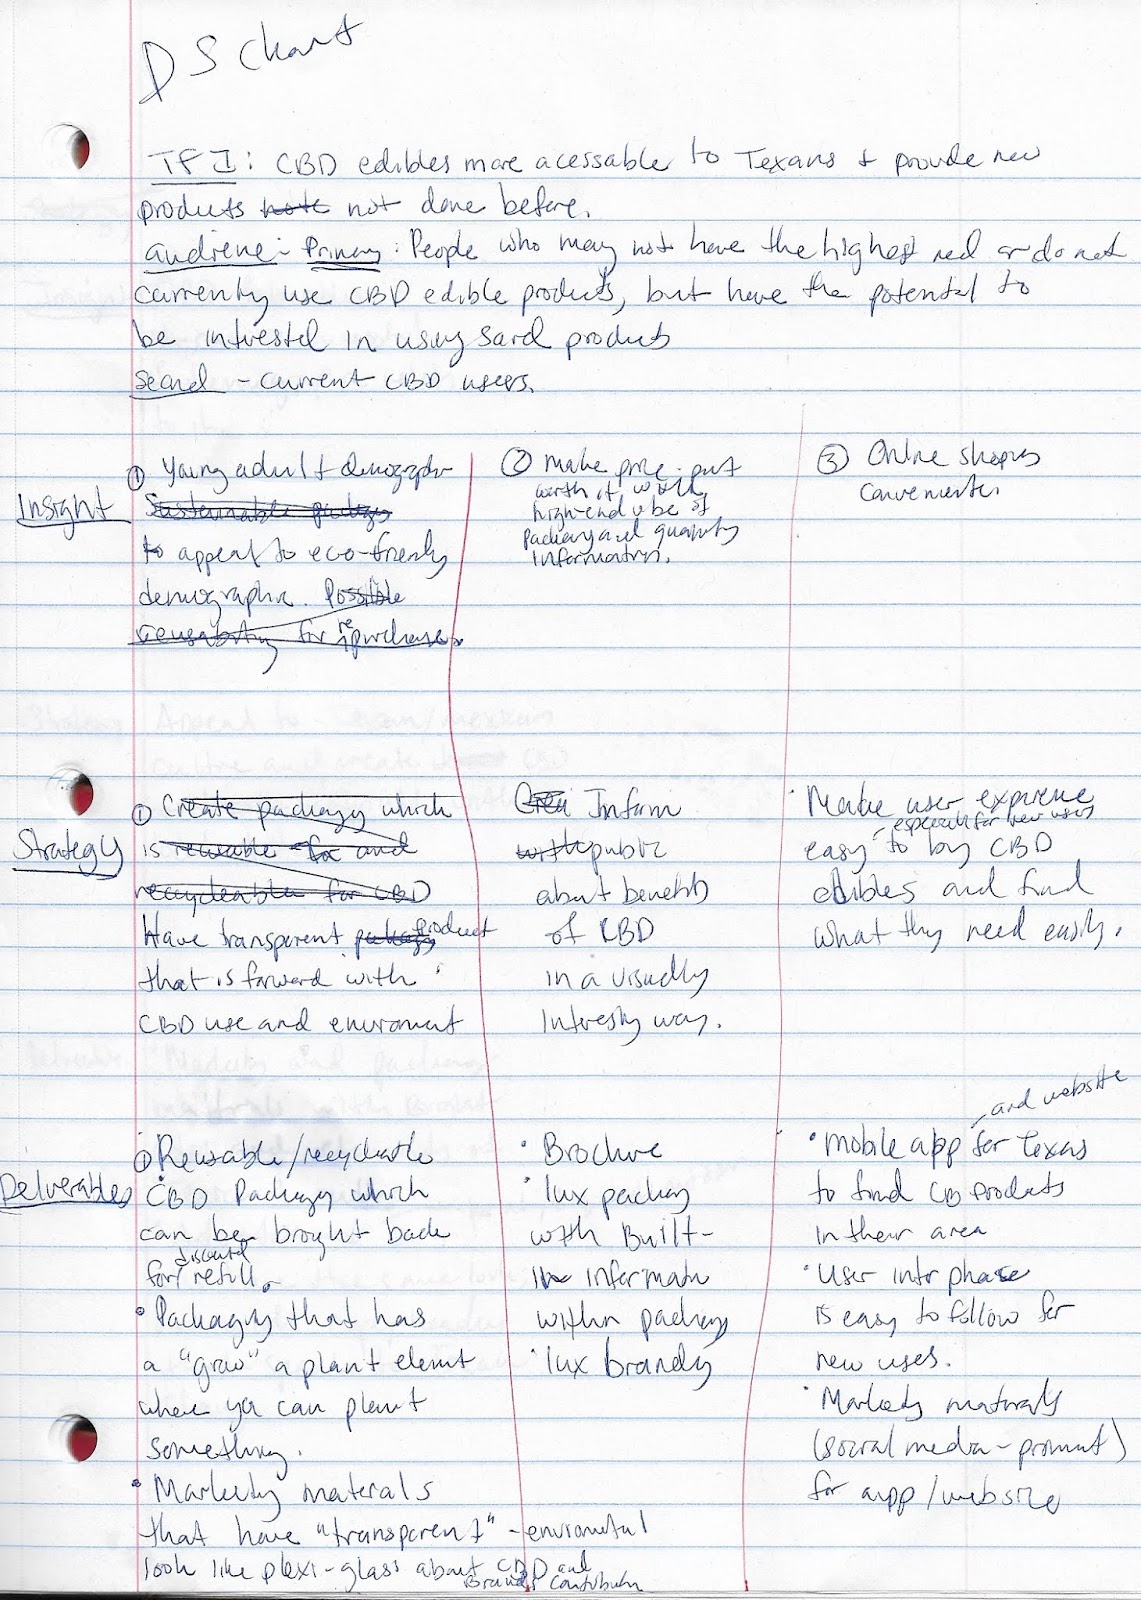 DS Chart
TFI: CBD edibles more acessable to Texans + provide new
products note not done before.
audiene - Primary: People who may not have the highest need or do not
currently use CBD edible products, but have the potential to
be intrested in using said products
Second - current CBD users.
Insight
① Young adult demographic
Sustainable packages
to appeal to eco-friendly
demographic. Possible
reusability for re purchases.
② Make price put
worth it with
high-end vibe of
packaging and quantity
information.
③ Online shoping
convenientes
Strategy
① Create packagy which
is reusable for and
recycleable for CBD
Have transparent packagy product
that is forward with
CBD use and enviroment
Crea Inform
with public
about benefits
of CBD
in a visually
intresting way.
• Make user experiene
- especially for new users
easy to buy CBD
edibles and find
what they need easily.
Deliverables
① Reusable/recycleable
CBD Packagy which
can be broght back
for discounted refill.
• Packagng that has
a "grow" a plant elemnt
where you can plant
something.
• Marketing materials
that have "transparent" - enviromental
look like plexi-glass about CBD and
Brands Contribution
• Brochure
• lux packag
with Built-
in informatn
within packag
• lux brandg
- and website
• mobile app for Texas
to find CB products
in their area
• User intrphase
is easy to follow for
new uses.
• Marketg materals
(social media - promot)
for app/website